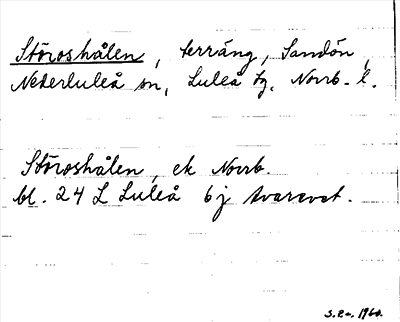 Störoshålen, terräng, Sandön,
Nederluleå sn, Luleå tg, Norrb. l.
Störoshålen, ek Norrb.
bl. 24 L Luleå 6j
1960.